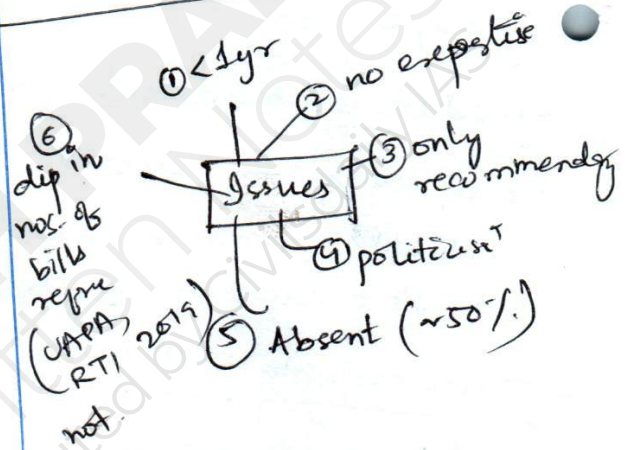 ① <1yr
② no expertise
③ only
recommendy
Issues
④ politicisⁿ
⑤ Absent (~50%)
⑥
dip in
nos. of
bills
refre
(UAPA,
RTI 2019)
not.